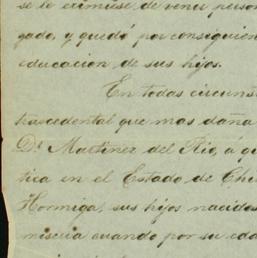 se le eximiese de venir person
gado, y quedó por consiguien
educacion de sus hijos.
En todas circuns
trascedental que mas daña
Dr Martinez del Rio, a qu
tica en el Estado de Chi
Hormiga, sus hijos nacidos
miseria cuando por su eda